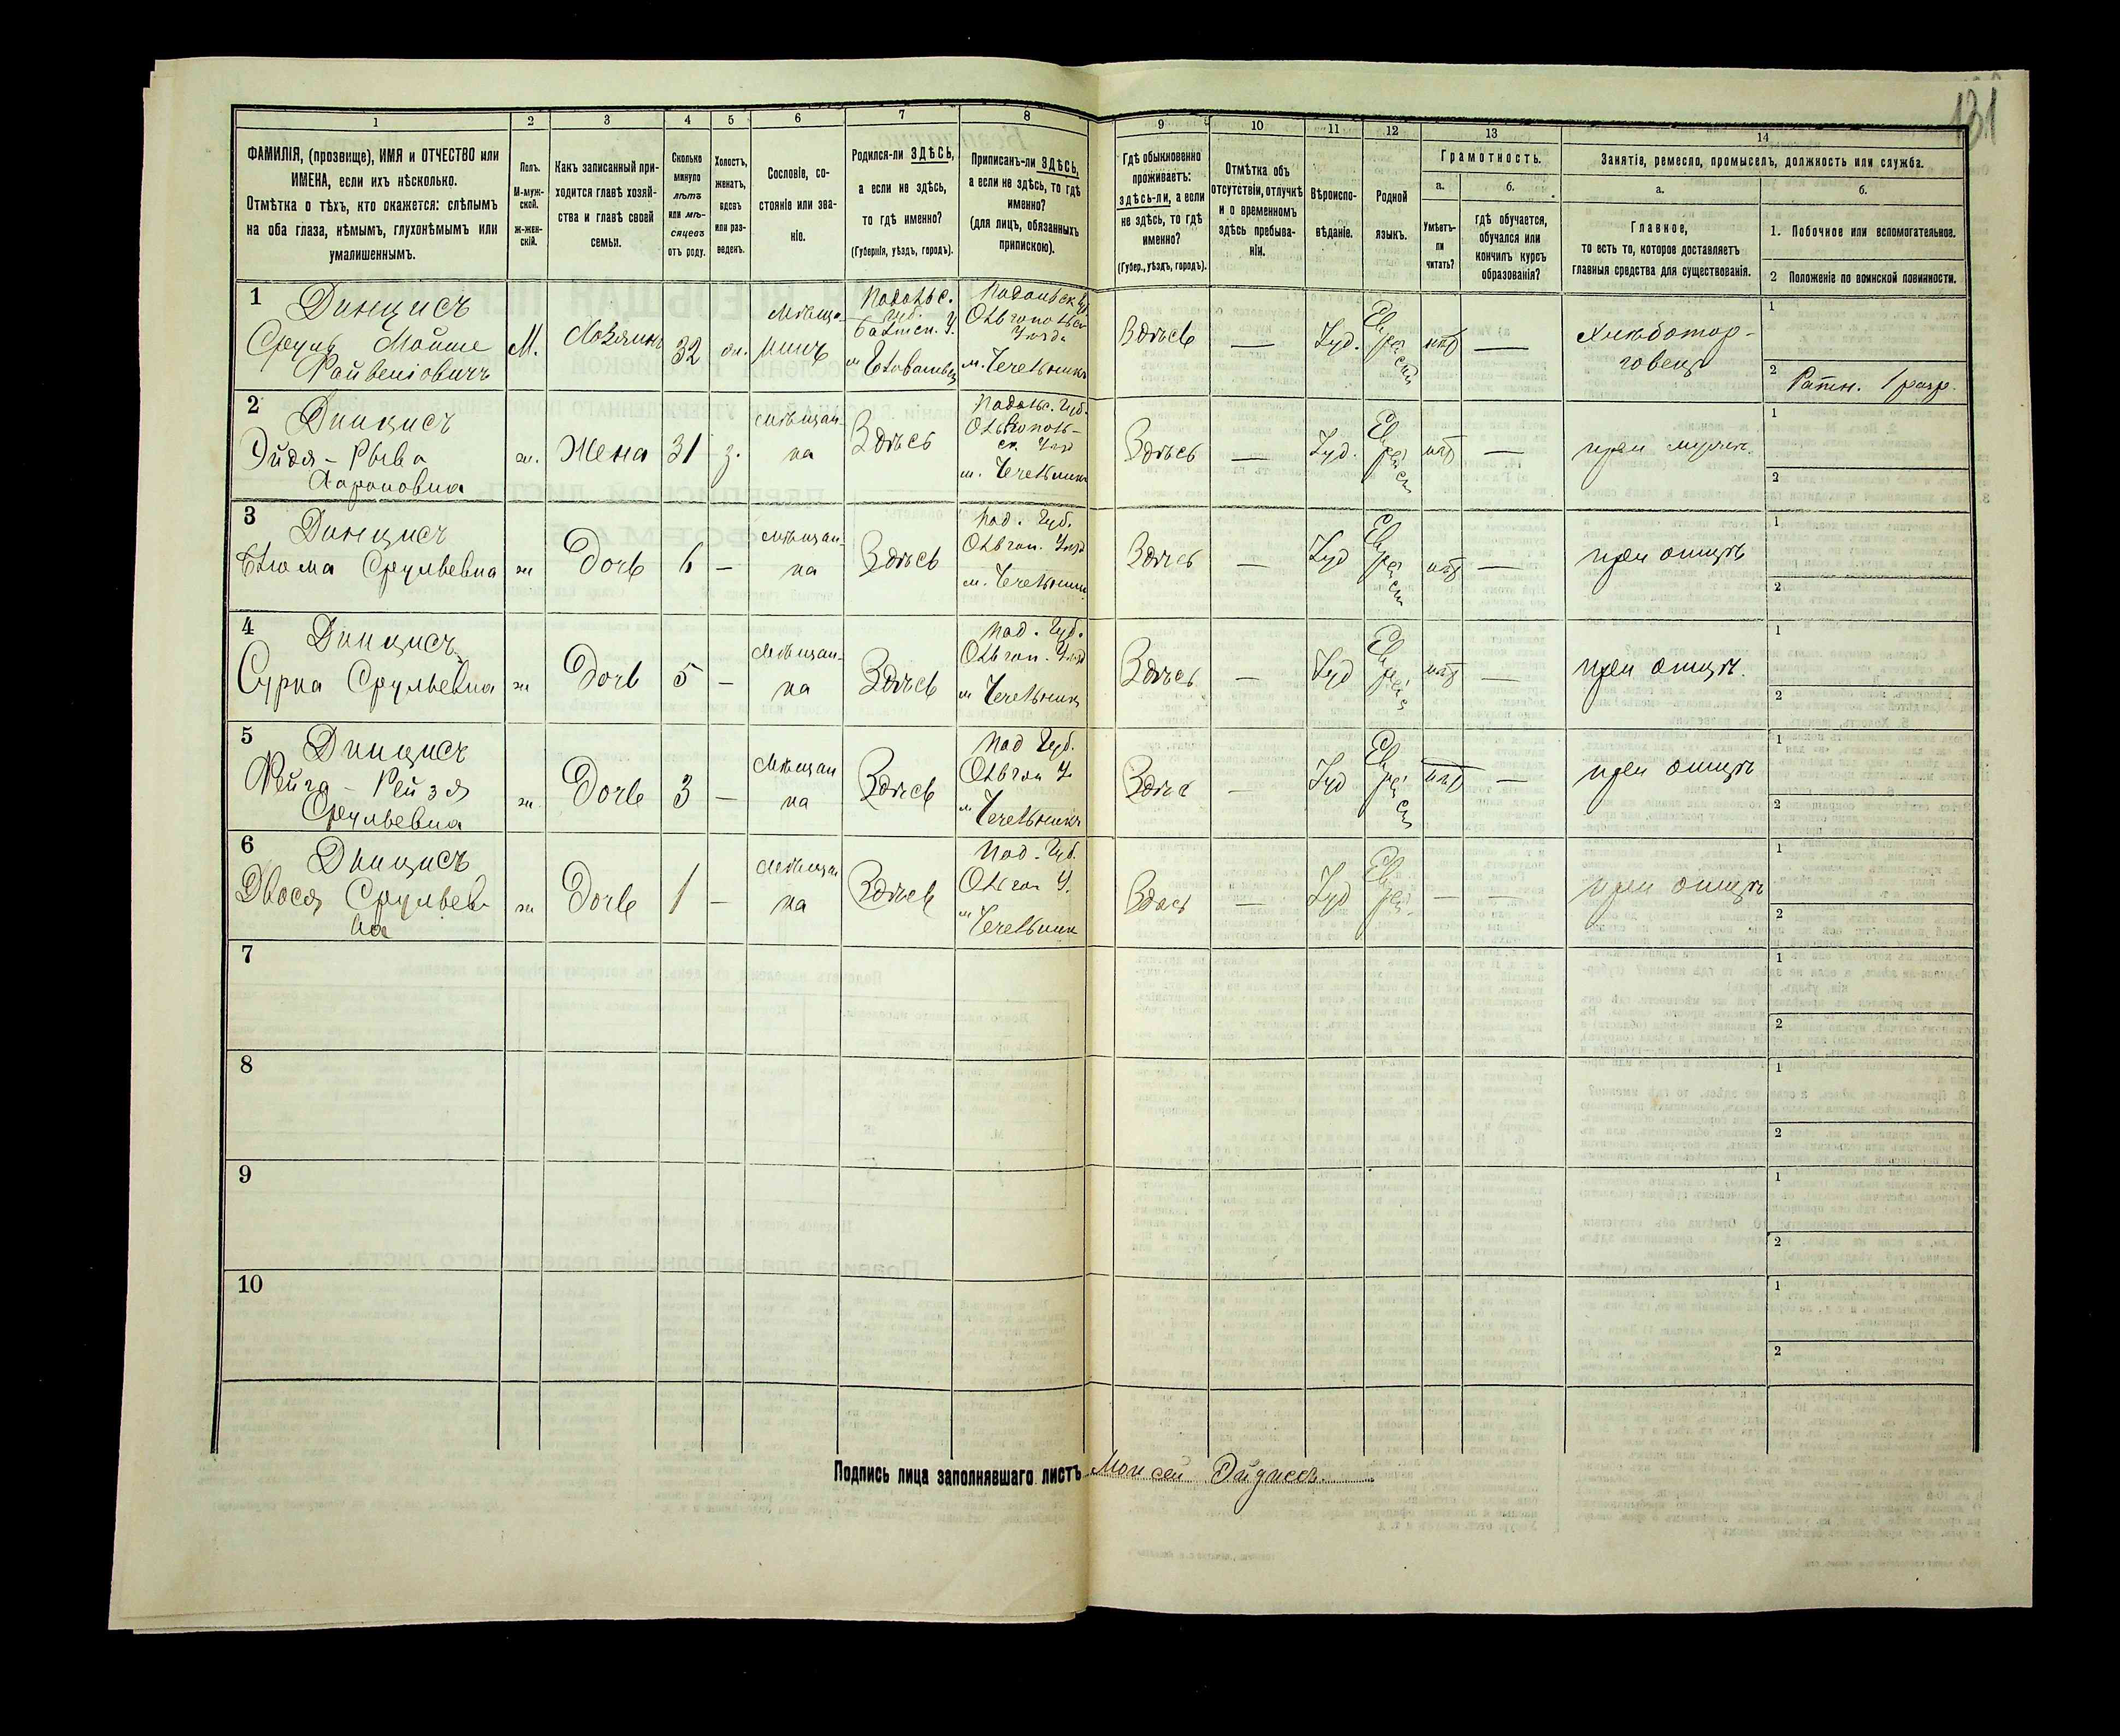 131
1
2
3
4
5
6
7
8
9
10
11
12
13
14
ФАМИЛІЯ, (прозвище), ИМЯ и ОТЧЕСТВО или
ИМЕНА, если ихъ нѣсколько.
Отмѣтка о тѣхъ, кто окажется: слѣпымъ
на оба глаза, нѣмымъ, глухонѣмымъ или
умалишеннымъ.
Полъ.
М-муж-
ской.
Ж-жен-
скій.
Какъ записанный при-
ходится главѣ хозяй-
ства и главѣ своей
семьи.
Сколько
минуло
лѣтъ
или мѣ-
сяцевъ
отъ роду.
Холостъ,
женатъ,
вдовъ
или раз-
веденъ.
Сословіе, со-
стояніе или зва-
ніе.
Родился-ли ЗДѢСЬ,
а если не здѣсь,
то гдѣ именно?
(Губернія, уѣздъ, городъ).
Приписанъ-ли ЗДѢСЬ,
а если не здѣсь, то гдѣ
именно?
(для лицъ, обязанныхъ
припискою).
Гдѣ обыкновенно
проживаетъ:
здѣсь-ли, а если
не здѣсь, то гдѣ
именно?
(Губер., уѣздъ, городъ).
Отмѣтка объ
отсутствіи, отлучкѣ
и о временномъ
здѣсь пребыва-
ніи.
Вѣроиспо-
вѣданіе.
Родной
языкъ.
Грамотность.
а.
б.
Умѣетъ-
ли
читать?
гдѣ обучается,
обучался или
кончилъ курсъ
образованія?
Занятіе, ремесло, промыселъ, должность или служба.
а.
б.
Главное,
то есть то, которое доставляетъ
главныя средства для существованія.
1. Побочное или вспомогательное.
2 Положеніе по воинской повинности.
1
Динцисъ
Сруль Мойше
М.
Хозяинъ
32
жн.
Подольс.
губ.
м.
м. Чечельникъ
Здѣсь
—
Іуд.
—
Хлѣботор-
говецъ
1
2
Ратн. 1 разр.
2
Динцисъ
Эйдя - Рыва
Хароновна
ж.
Жена
31
з.
мѣщан-
ка
Здѣсь
Подольс. Губ.
Ольгополь-
ск. Уѣзд
м. Чечельникъ
Здѣсь
—
Іуд.
Еврейск
нѣт
—
при мужѣ.
1
2
3
Динцисъ
Блюма Срульевна
ж
Дочь
6
—
мѣщан-
ка
Здѣсь
Под. Губ.
Ольгоп. Уѣзд
м. Чечельник
Здѣсь
—
Іуд
Еврейск
нѣт
—
при отцѣ
1
2
4
Динцисъ
Сурка Срульевна
ж
Дочь
5
—
Мѣщан-
ка
Здѣсь
Под. Губ.
Ольгоп. Уѣзд
м Чечельник
Здѣсь
—
Іуд
Еврейс
нѣт
—
при отцѣ.
1
2
5
Динцисъ
Фейга - Рейзя
Срульевна
ж
Дочь
3
—
Мѣщан
ка
Здѣсь
Под Губ.
Ольгоп У
м Чечельникъ
Здѣсь
—
Іуд
Еврейск
нѣт
—
при отцѣ
1
2
6
Динцисъ
Двося Срульев-
на
ж
Дочь
1
—
Мѣщан
ка
Здѣсь
Под. Губ.
Ольгоп У.
м Чечельник
Здѣсь
—
Іуд
Еврей
—
—
при отцѣ
1
2
7
1
2
8
1
2
9
1
2
10
1
2
Подпись лица заполнявшаго листъ Моисей